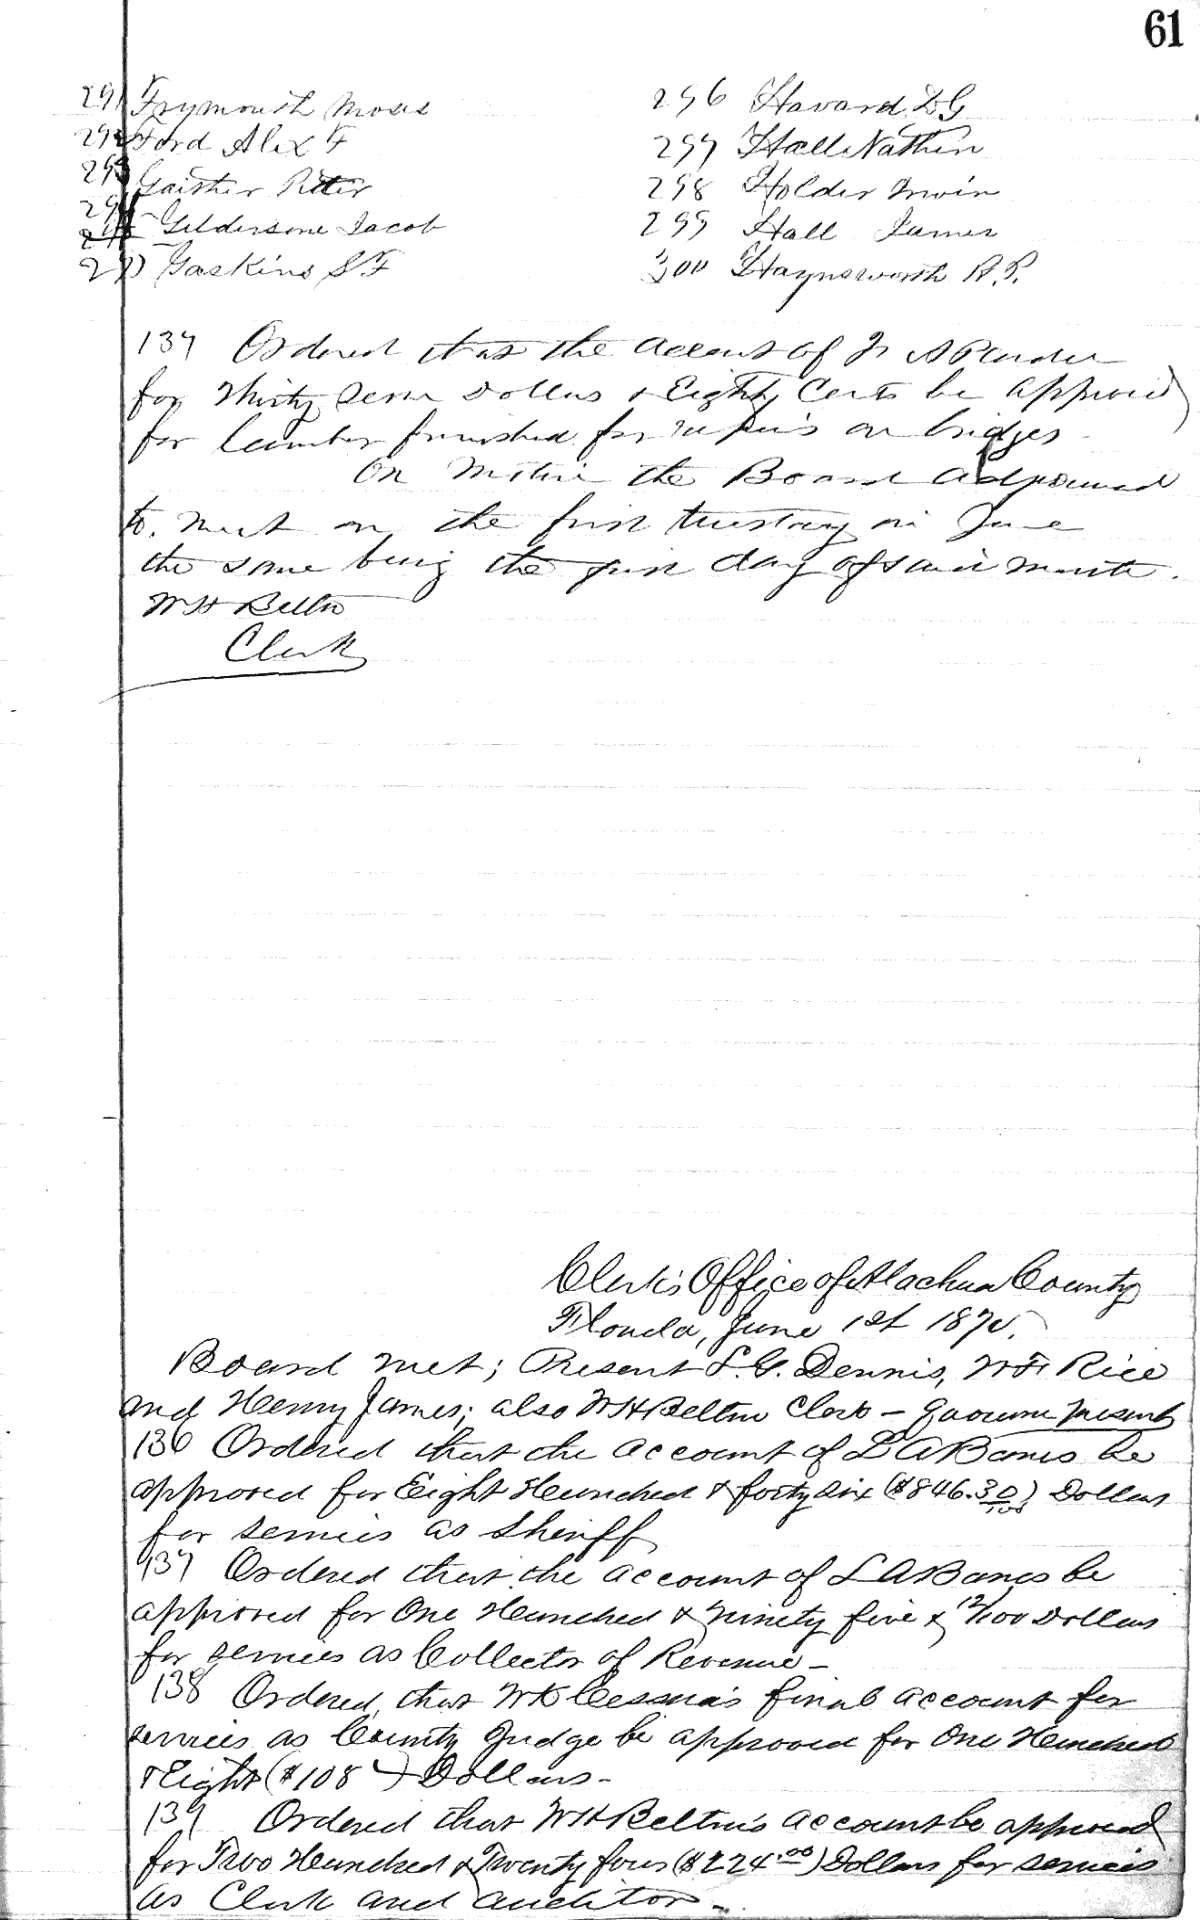 61
291 Frymouth Moses
292 Ford Alex F
293 Gaither Peter
294 Geldersone Jacob
295 Gaskins S F
296 Havard D G
297 Hall Nathin
298 Holder Irwin
299 Hall James
300 Haynsworth A. P.
137 Ordered that the account of
for thirty seven Dollars & Eighty Cents be approved
for lumber furnished for repairs on bridges
On motion the Board adjourned
to meet on the first tuesday in June
the same being the first day of said month.
W H Belton
Clerk
Clerk's Office of Alachua County
Florida, June 1st 1870.
Board met; Present L. G. Dennis, W F Rice
and Henry James; also W H Belton Clerk — Quorum present
136 Ordered that the account of L A Barnes be
approved for Eight Hundred & forty six ($846.30/100) Dollars
for services as Sheriff
137 Ordered that the account of L A Barnes be
approved for One Hundred & Ninety five & 12/100 Dollars
for services as Collector of Revenue —
138 Ordered, that W K Cessna's final account for
services as County Judge be approved for One Hundred
& Eight ($108 —) Dollars —
139 Ordered that W H Belton's account be approved
for Two Hundred & Twenty four ($224.00) Dollars for services
as Clerk and auditor —